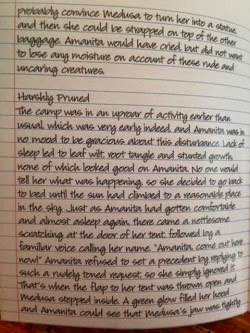 probably convince Medusa to turn her into a statue
and then she could be strapped on top of the other
baggage. Amanita would have cried, but did not want
to lose any moisture on account of these rude and
uncaring creatures.
Harshly Pruned
The camp was in an uproar of activity earlier than
usual, which was very early indeed, and Amanita was in
no mood to be gracious about this disturbance. Lack of
sleep led to leaf wilt, root tangle and stunted growth,
none of which looked good on Amanita. No one would
tell her what was happening, so she decided to go back
to bed until the sun had climbed to a reasonable place
in the sky. Just as Amanita had gotten comfortable
and almost asleep again, there came a nettlesome
scratching at the door of her tent, followed by a
familiar voice calling her name. "Amanita, come out here
now!" Amanita refused to set a precedent by replying to
such a rudely toned request, so she simply ignored it.
That's when the flap to her tent was thrown open and
Medusa stepped inside. A green glow filled her hood
and Amanita could see that Medusa's jaw was tightly